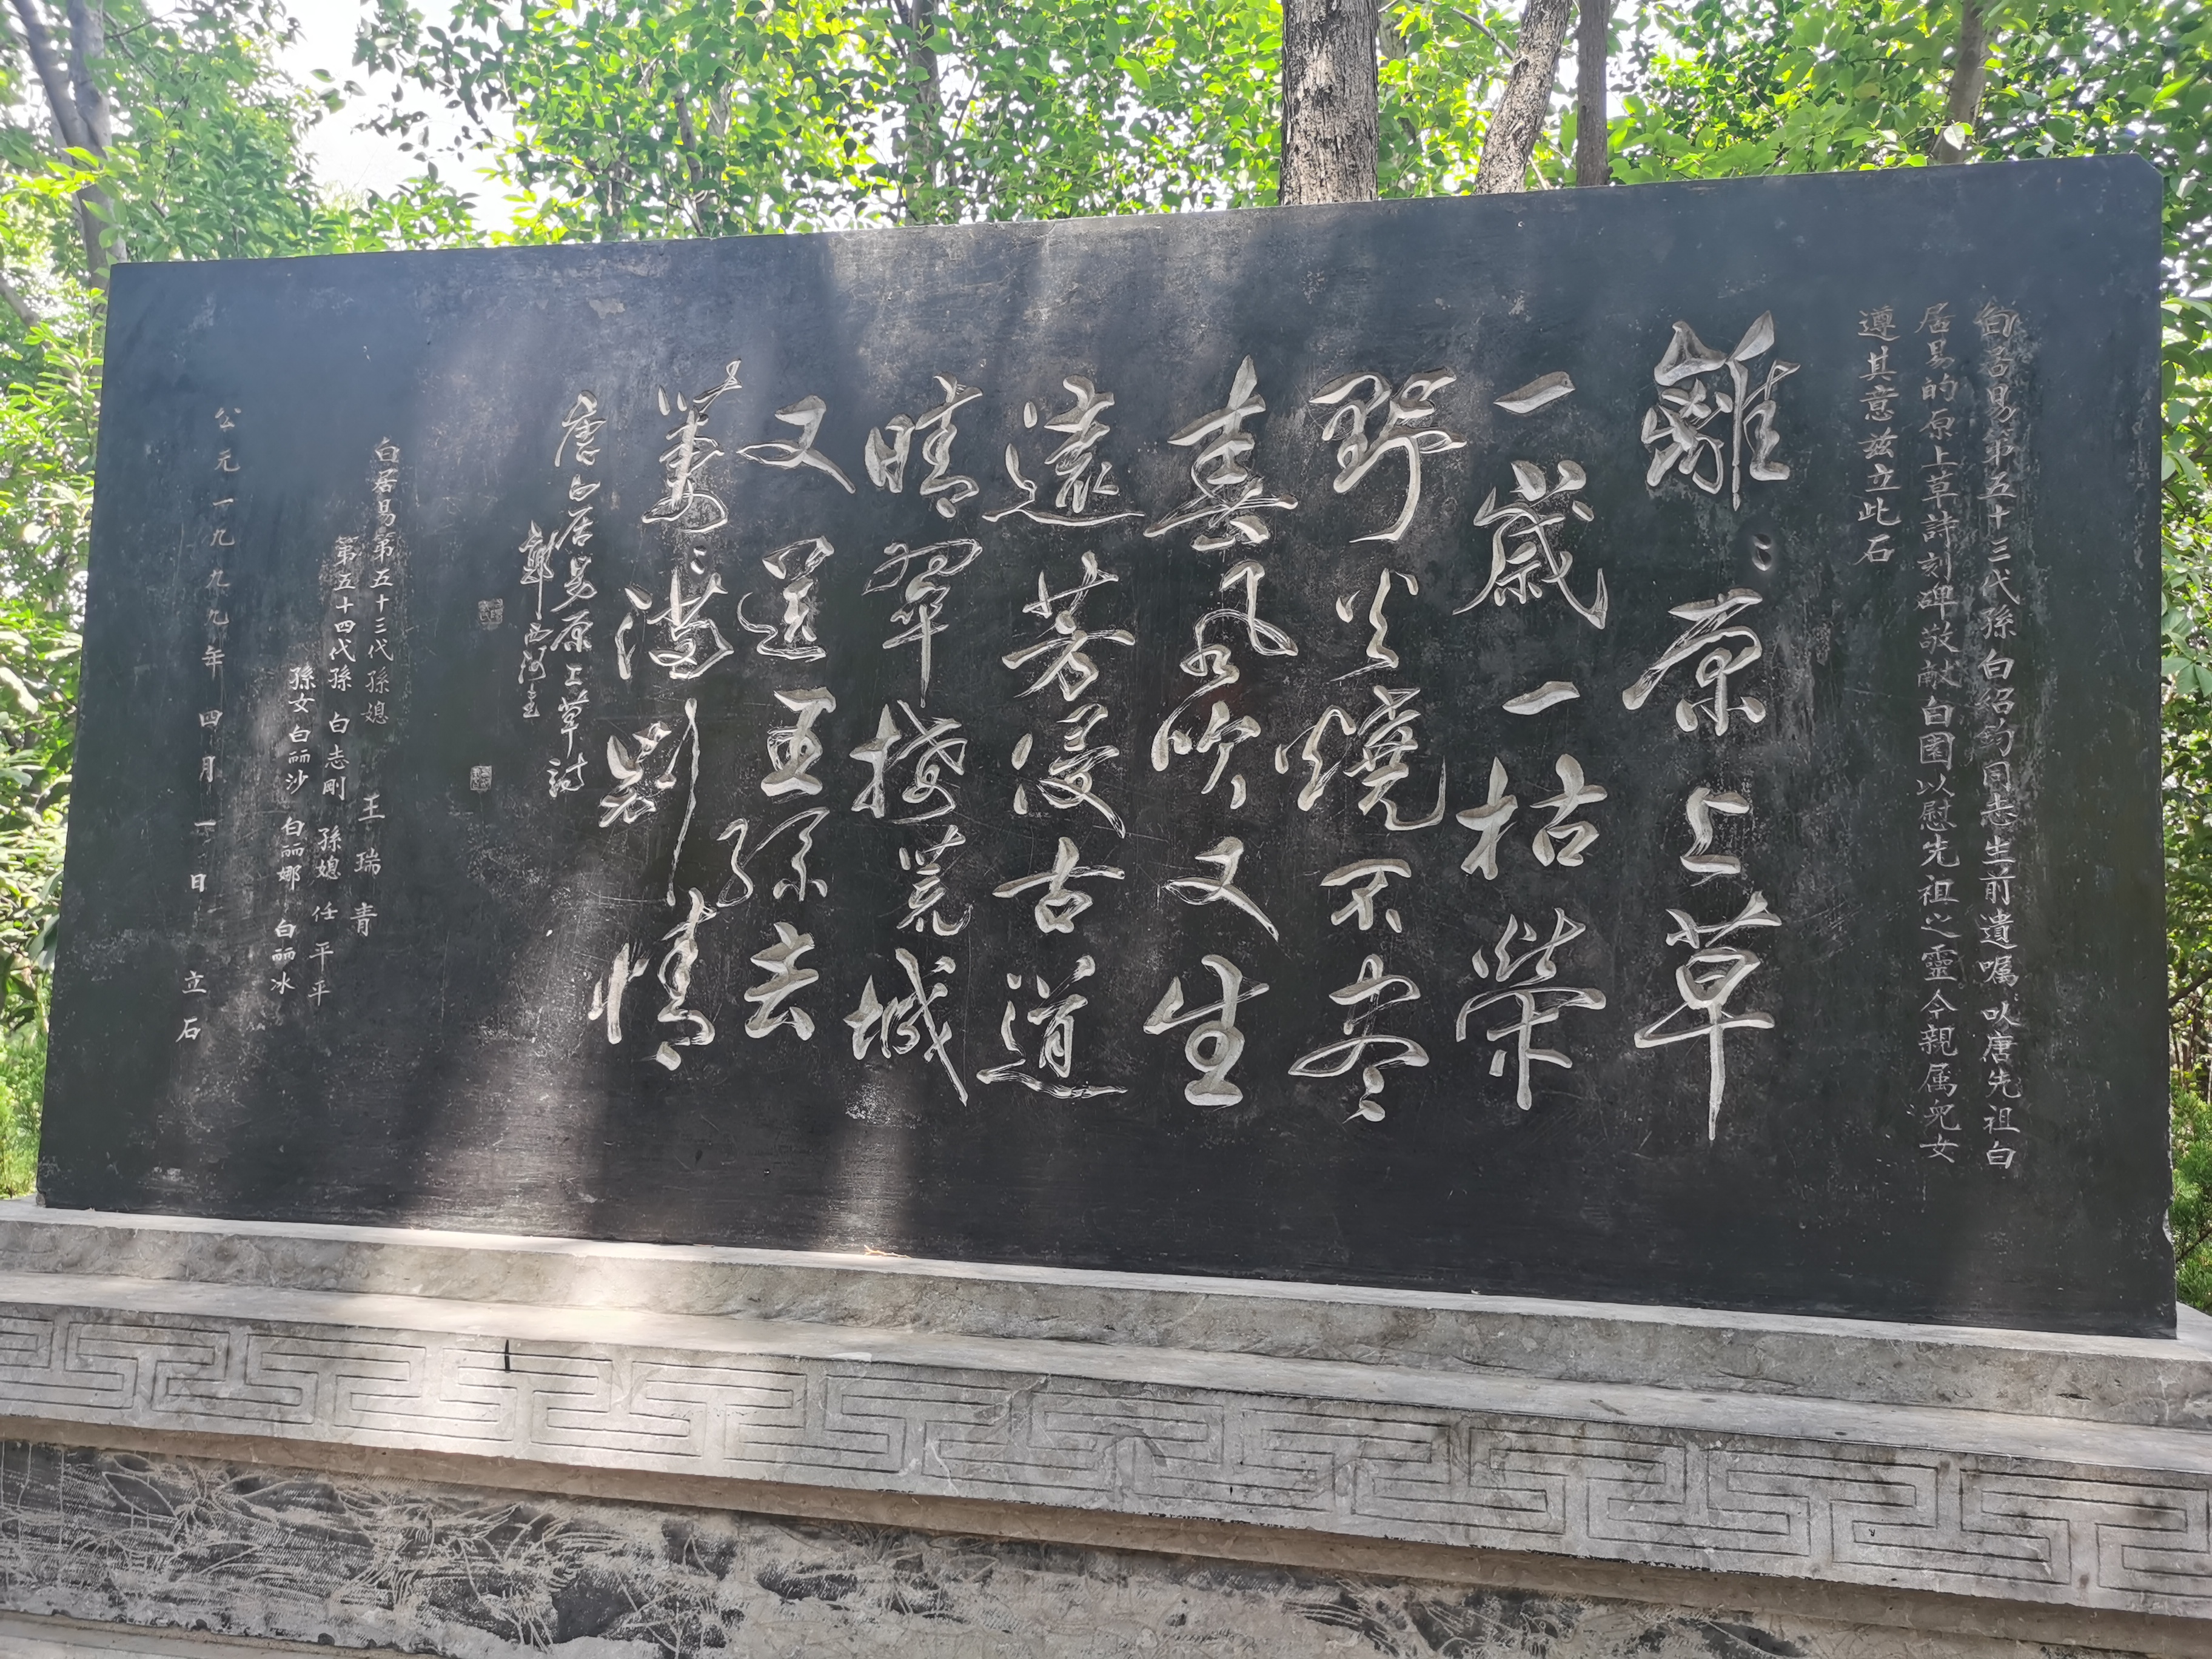 白居易第五十三代孫白紹鈞同志生前遺嘱以唐先祖白
居易的原上草詩刻碑敬献白園以慰先祖之靈今親属兒女
遵其意兹立此石
離：原上草
一歲一枯榮
野火燒不尽
春風吹又生
遠芳侵古道
晴翠接荒城
又送王孫去
萋：滿別情
唐白居易原上草詩
白居易第五十三代孫媳 王瑞青
第五十四代孫 白志剛 孫媳 任平平
孫女 白丽沙 白丽娜 白丽冰
公元一九九九年四月一日 立石